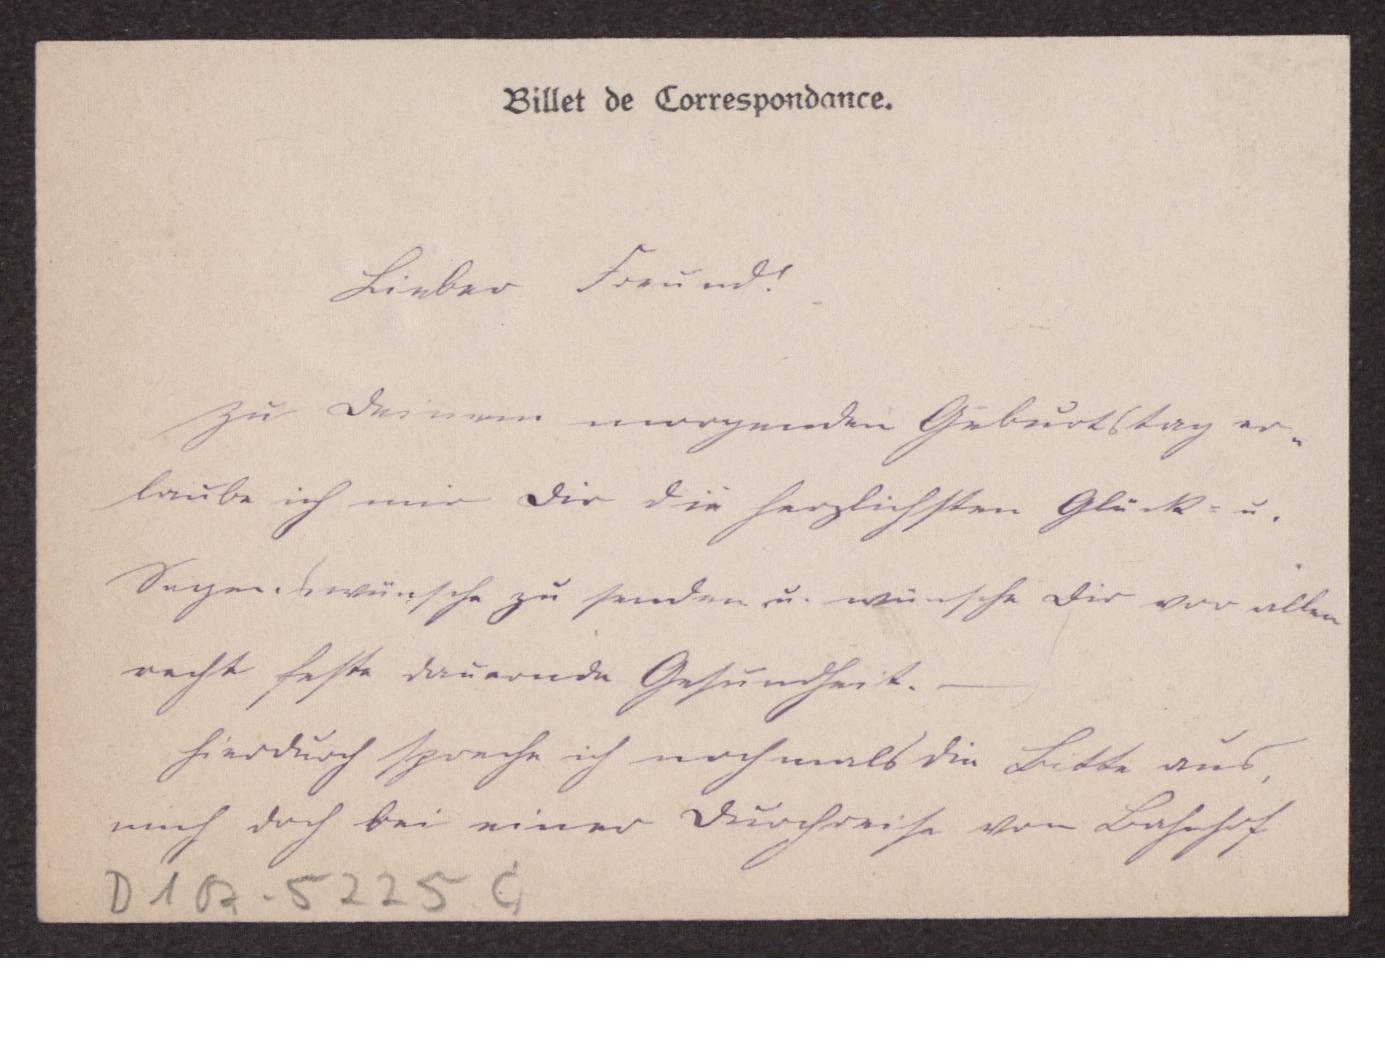 Billet de Correspondance.
Lieber Freund!
Zu Deinem morgenden Geburtstag er-
laube ich mir Dir die herzlichsten Glück- u.
Segenswünsche zu senden u. wünsche Dir vor allen
recht feste dauernde Gesundheit. —
Hierdurch spreche ich nochmals die Bitte aus,
mich doch bei einer Durchreise vom Bahnhof
D 107-5225 G